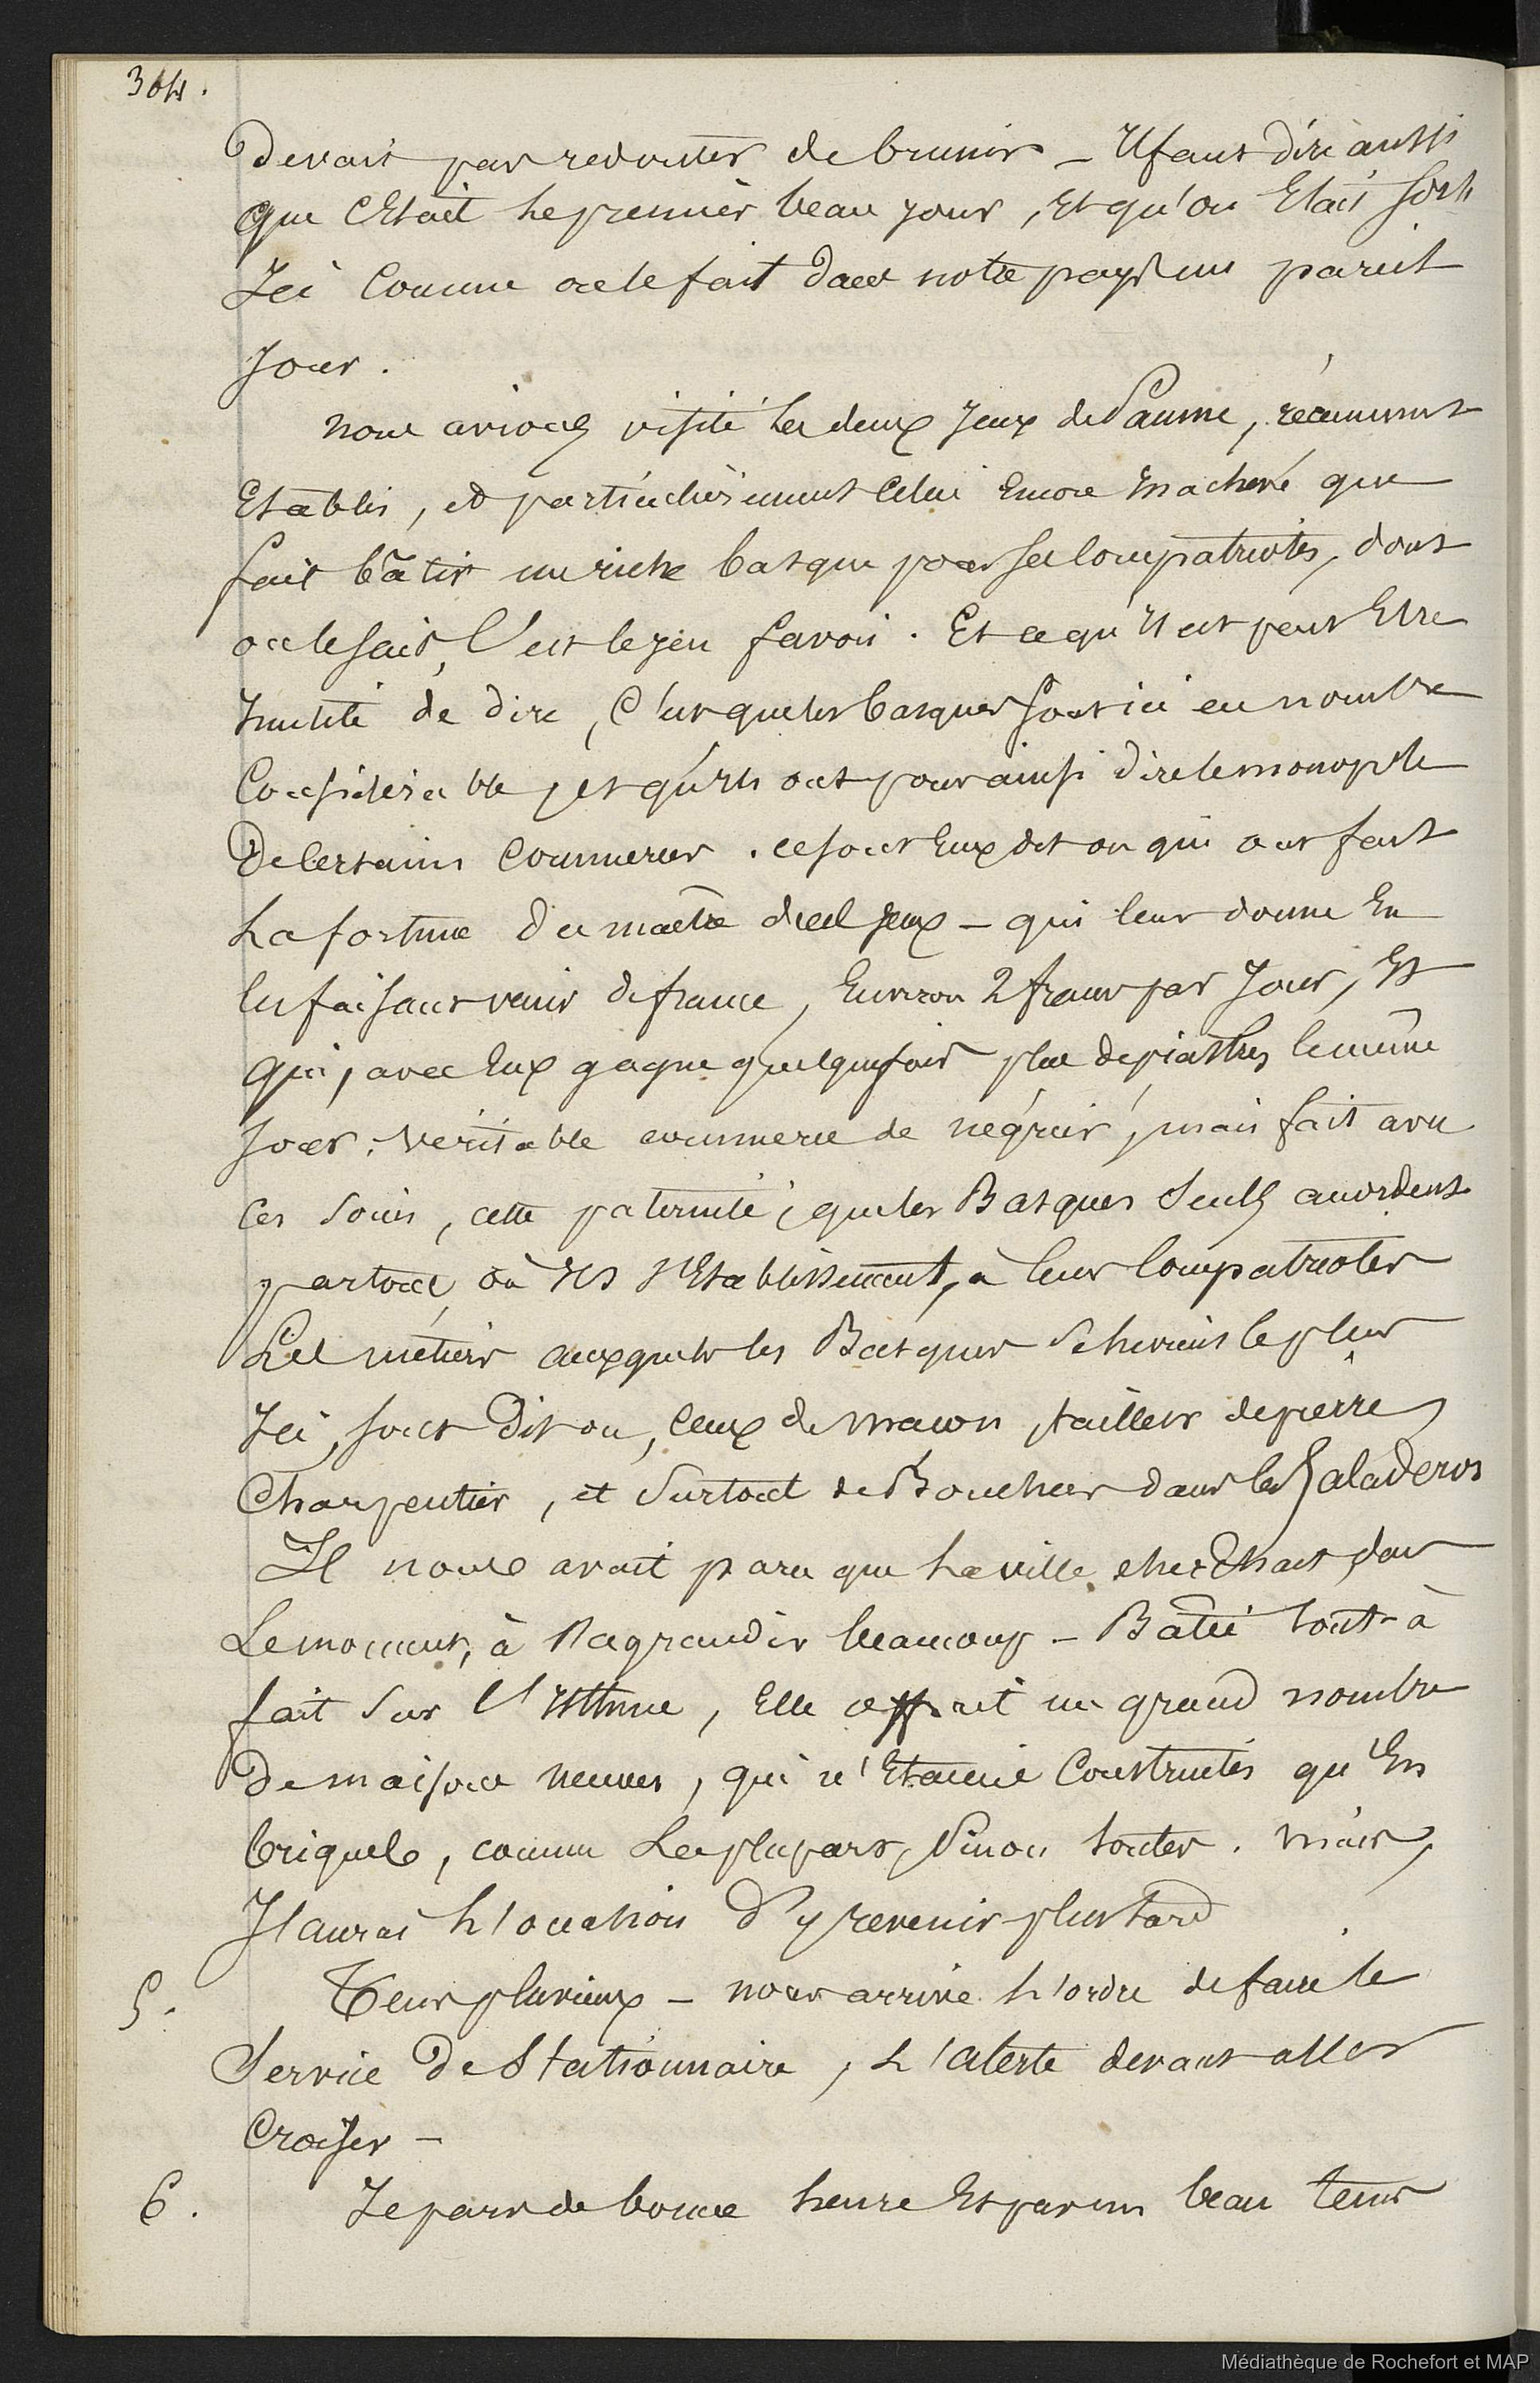 364.
devait pas redouter de brunir – Il faut dire aussi
que c'Etait le premier beau jour, Et qu'on Etait sorti
Ici Comme on le fait dans notre pays un pareil
Jour.
nous avions visité les deux Jeux de Paume, récemment
Etablis, et particulièrement Celui Encore Inachevé que
fait bâtir un riche basque pour ses Compatriotes, dont
on le sait, C'est le jeu favori. Et ce qu'Il est peut Etre
Inutile de dire, C'est que les basques sont ici en nombre
Considérable, et qu'Ils ont pour ainsi dire le monopole
De Certains Commerces. ce sont Eux dit on qui ont fait
La fortune du maître des Jeux – qui leur donne En
les faisant venir de france, Environ 2 francs par Jour, Et
qui, avec Eux gagne quelquefois plus de piastres le même
Jour; véritable commerce de négrier, mais fait avec
Ces soins, cette paternité, que les Basques seuls accordent
partout où Ils s'Etablissent, à leurs Compatriotes
Les métiers auxquels les Basques se livrent le plus
Ici, sont Dit on, Ceux de macon, tailleur de pierre,
Charpentier, et surtout de Boucher dans les Saladeros
Il nous avait paru que la ville cherchait, dans
Le moment, à s'agrandir beaucoup – Bâtie tout à
fait sur l'Isthme, Elle offrait un grand nombre
De maisons neuves, qui n'Etaient Construites qu'En
briques, comme La plupart, sinon toutes. mais,
J'aurai L'occasion d'y revenir plus tard
5. Tems pluvieux – nous arrive L'ordre de faire le
Service De Stationnaire, L'alerte devant aller
Croiser –
6. Je pars de bonne heure Et par un beau tems
Médiathèque de Rochefort et MAP